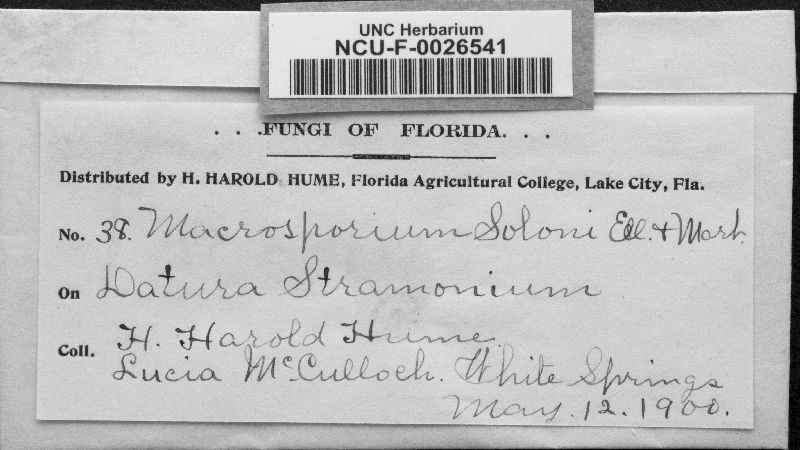 UNC Herbarium
NCU-F-0026541
. . .FUNGI OF FLORIDA. . .
Distributed by H. HAROLD HUME, Florida Agricultural College, Lake City, Fla.
No. 38. Macrosporium Soloni Ell. & Mart.
On Datura Stramonium
Coll. H. Harold Hume.
Lucia McCulloch. White Springs
May. 12. 1900.